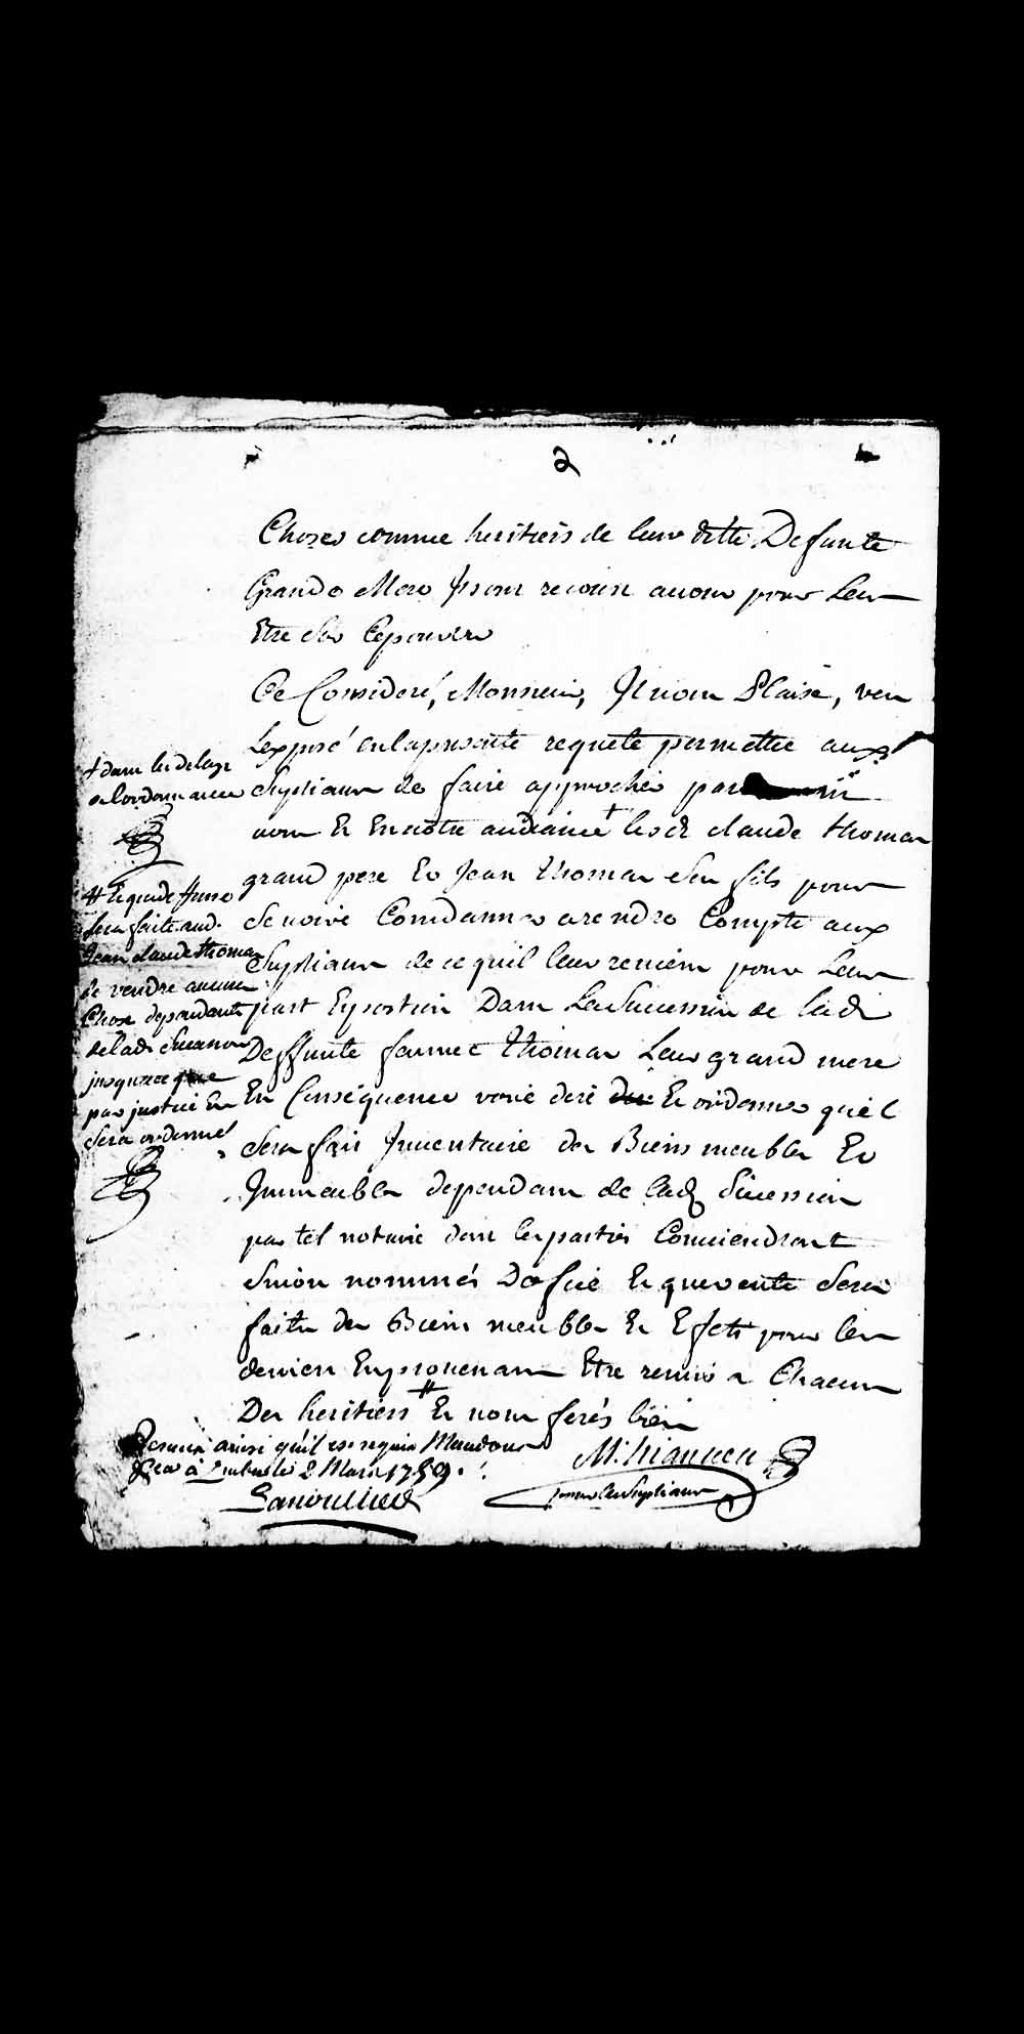 2
Choses comme heritiers de leur ditte Defunte
Grande Mere Ils ont recours a vous pour Leur
Etre Sur Ce pourvu
Ce Consideré, Monsieur, Il vous Plaise, veu
Lexposé en la presente requete permettre aux
Supliants de faire approcher par
vous Et En votre audiance + lesd claude thomas
grand pere Et Jean thomas Son fils pour
Se voire Condamner a rendre Compte aux
Supliants de ce quil leur revient pour Leur
part Et portion Dans La Succession de lad
Deffunte femme thomas Leur grand mere
En Conséquence voire dire Et ordonner quil
Sera fait Inventaire des Biens meubles Et
Immeubles dependant de lad Sucession
par tel notaire dont les parties Conviendront
Sinon nommés Doffice Et que vente Sera
faitte des Biens meubles Et Effets pour les
deniers En provenant Etre remis a Chacun
Des heritiers # Et vous ferés bien
+ dans les delays
de lordonnance
# Et que deffense
Sera faite aud.
Jean claude thomas
de vendre aucune
Chose dependante
de lad Sucession
jusqua ce que
par justice En
Sera ordonné
ainsi qu'il est requis Mandons
à 2 Mars 1789.
pour les Supliants